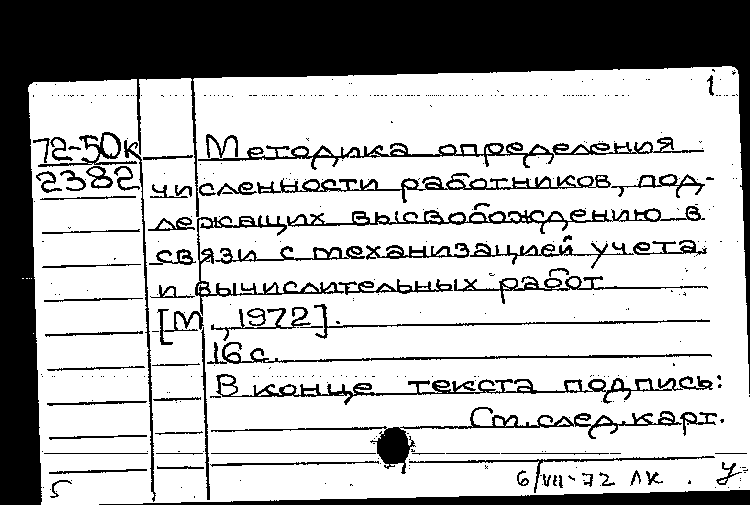 1
72-50к
2382
Методика определения
численности работников, под-
лежащих высвобождению в
связи с механизацией учета
и вычислительных работ
[М., 1972].
16 с.
В конце текста подпись:
См. след. карт.
6/VII-72 ЛК . У
5